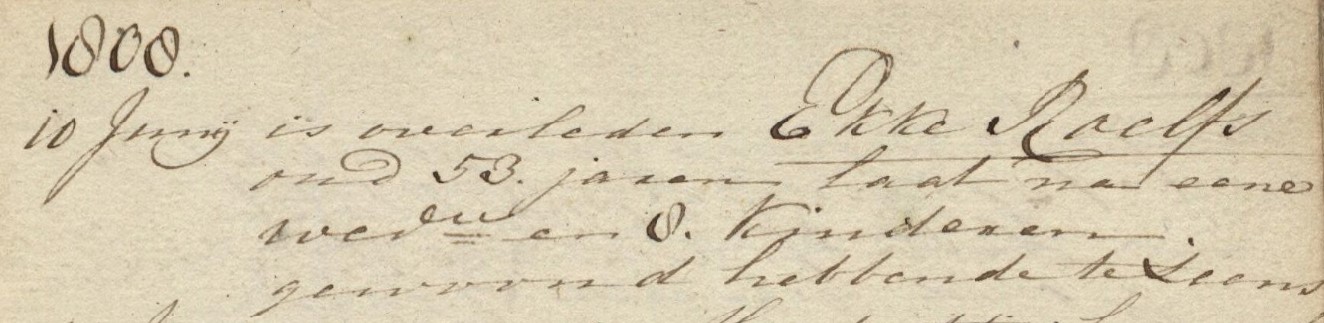 1808.
10 Junij is overleden Ekke Roelfs
oud 53. jaren laat na eene
wedew en 8. Kinderen.
gewoond hebbende te Leens